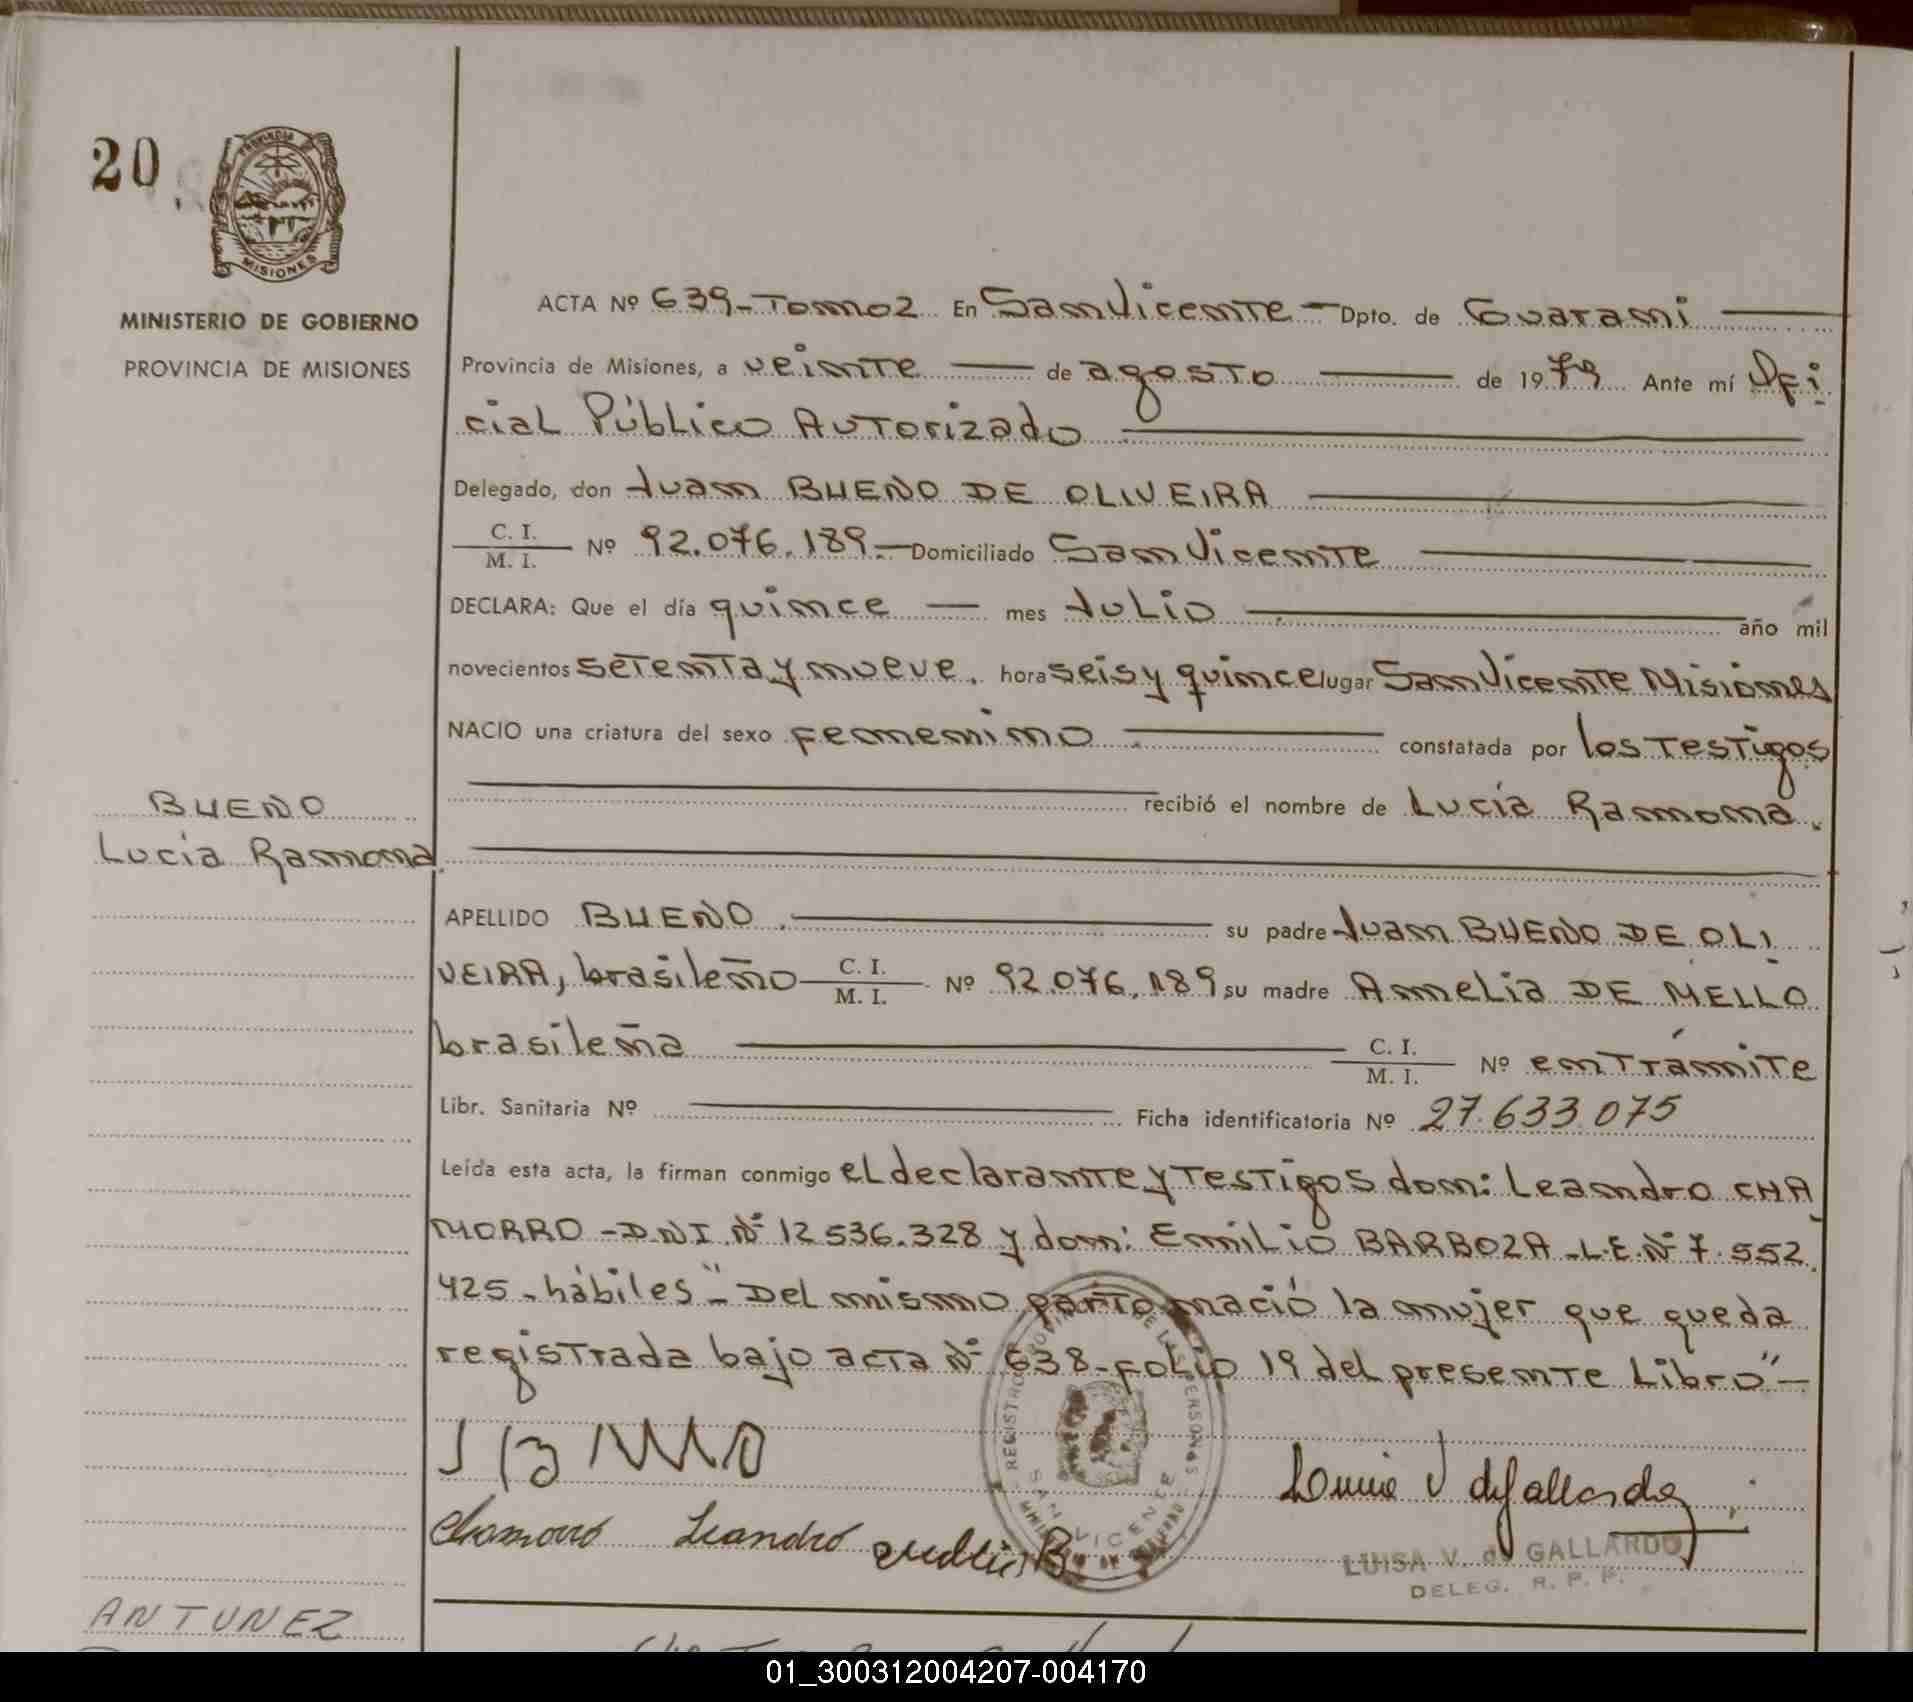 20
PROVINCIA
MISIONES
MINISTERIO DE GOBIERNO
PROVINCIA DE MISIONES
ACTA Nº 639-Tomo 2 En San Vicente - Dpto. de Guarani
Provincia de Misiones, a veinte de agosto de 1979 Ante mí Ofi
cial Público Autorizado
Delegado, don Juan BUENO DE OLIVEIRA
C. I.
M. I. Nº 92.076.189.- Domiciliado San Vicente
DECLARA: Que el día quince mes Julio año mil
novecientos setenta y nueve. hora seis y quince lugar San Vicente Misiones
NACIO una criatura del sexo femenino constatada por los testigos
recibió el nombre de Lucía Ramona.
BUENO
Lucía Ramona
APELLIDO BUENO. su padre Juan BUENO DE OLI
VEIRA, brasileño C. I. M. I. Nº 92.076.189 su madre Amelia DE MELLO
brasileña C. I. M. I. Nº en Trámite
Libr. Sanitaria Nº Ficha identificatoria Nº 27.633.075
Leída esta acta, la firman conmigo el declarante y testigos don: Leandro CHA
MORRO - D.N.I. Nº 12 536.328 y don: Emilio BARBOZA - L.E. Nº 7.552.
425 - hábiles "- Del mismo parto nació la mujer que queda
registrada bajo acta Nº 638 - folio 19 del presente Libro" -
Chamorro Leandro
REGISTRO PROVINCIAL DE LAS PERSONAS
SAN VICENTE
LUISA V. de GALLARDO
DELEG. R. P. P.
ANTUNEZ
01_300312004207-004170